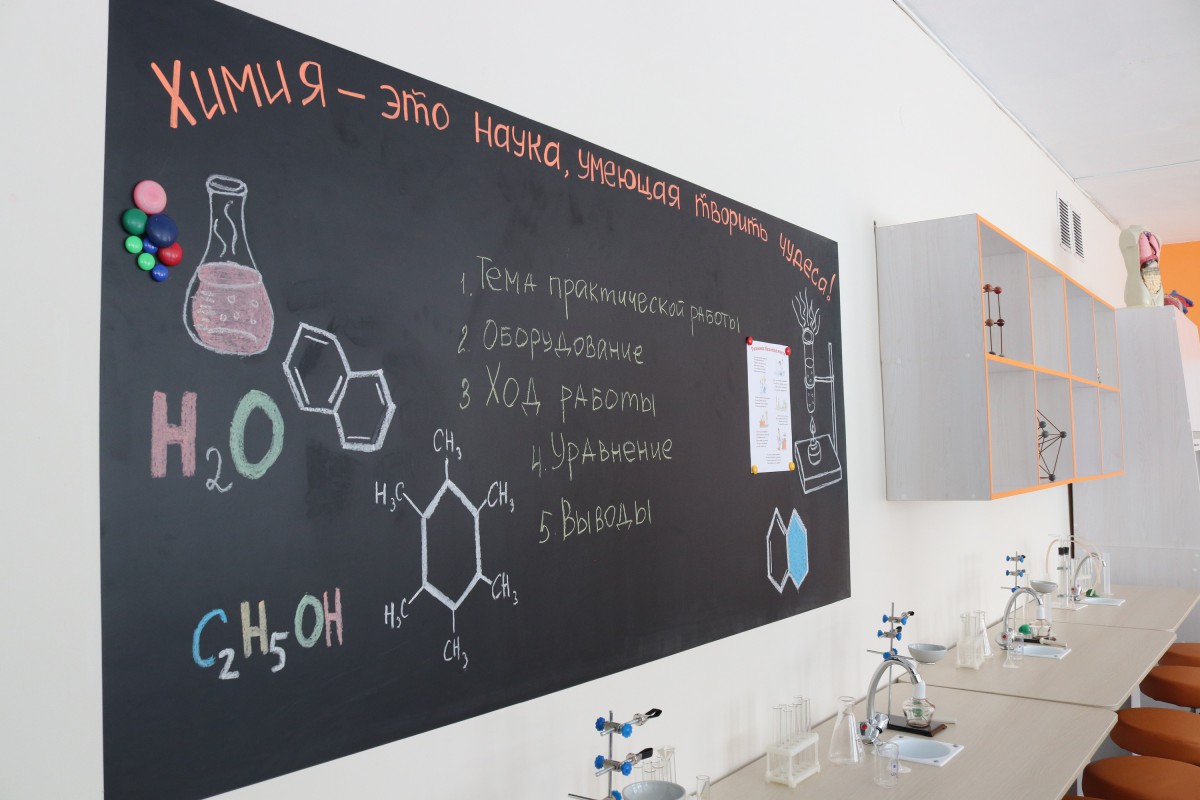 Химия – это наука, умеющая творить чудеса!
1. Тема практической работы
2. Оборудование
3 Ход работы
4. Уравнение
5. Выводы
H2O
CH3
H3C
CH3
H3C
CH3
CH3
C2H5OH